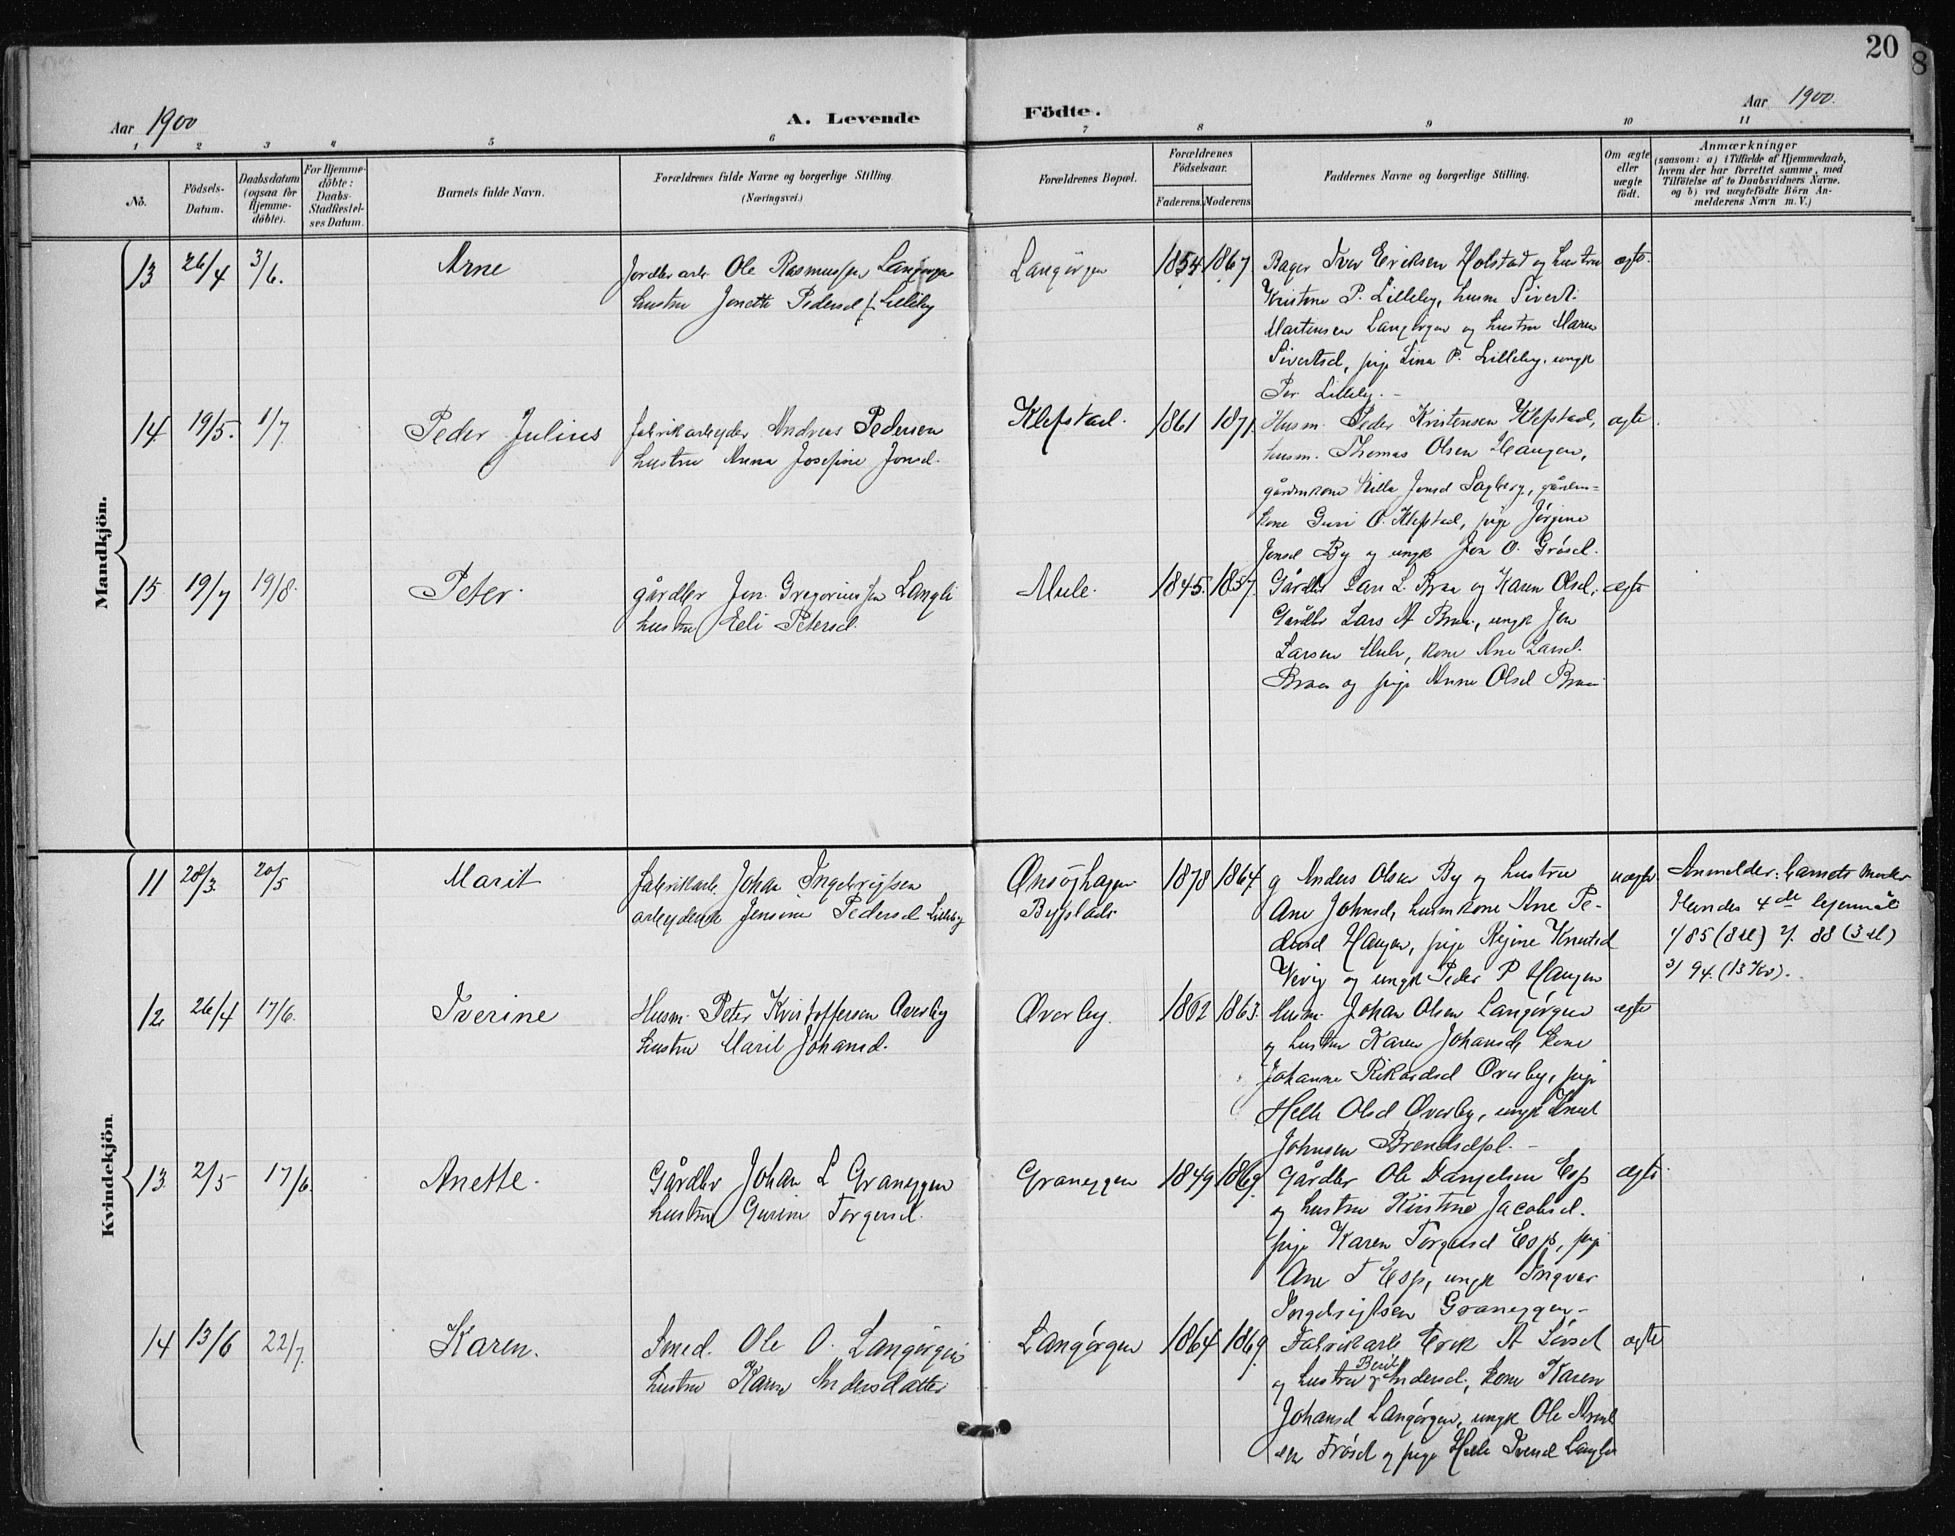 20
8
Aar 1900
A. Levende Födte.
Aar 1900.
1 2 3 4 5 6 7 8 9 10 11
No.
Födsels-Datum.
Daabsdatum (ogsaa for Hjemme-döbte).
For Hjemme-döbte: Daabs-Stadfæstel-ses Datum.
Barnets fulde Navn.
Forældrenes fulde Navne og borgerlige Stilling.
(Næringsvei.)
Forældrenes Bopæl.
Forældrenes Födselsaar.
Faderens. Moderens.
Faddernes Navne og borgerlige Stilling.
Om ægte eller uægte födt.
Anmærkninger
(saasom: a) i Tilfælde af Hjemmedaab,
hvem der har forrettet samme, med
Tilföielse af to Daabsvidners Navne,
og b) ved uægtefödte Börn An-
melderens Navn m. V.)
Mandkjön.
13 26/4 3/6. Arne
Ole Rasmussen Langørgen
hustru Jonette Pedersd f. Lilleby
Langørgen 1854 1867
Bager Iver Eriksen Holstad og hustru
Kristine P. Lilleby, husm Sivert
Martinsen Langørgen og hustru Maren
Sivertsd, pige Lina P. Lilleby, ungk
Per Lilleby. -
ægte.
14 19/5. 1/7 Peder Julius
fabrikarbeyder Andreas Pedersen
hustru Anna Josefine Jonsd.
Klefstad. 1861 1871.
Husm. Peder Kristensen Klefstad,
husm. Thomas Olsen Haugen,
gårdmkone Jonsd Sagberg, gårdm=
kone Guri O. Klefstad, pige Jørgine
Jonsd By og ungk Jon O. Grøset.
ægte.
15 19/7 19/8. Peter.
gårdbr Jon Gregoriussen Langli
hustru Eli Petersd.
Mule. 1845. 1857.
Gårdbr Lars L. Braa og Karen Olsd,
Gårdbr Lars A Braa, ungk Jon
Larsen Mule, kone Ane Larsd.
Braa og pige Anne Olsd Braa
ægte
Kvindekjön
11 28/3. 20/5 Marit
fabrikarb Johan Ingebrigtsen
arbeyderske Jensine Pedersd Lilleby
Ønsøyhagen
Bypslads
1878 1864.
g Anders Olsen By og hustru
Ane Johnsd, husmkone Ane Pe-
dersd Haugen, pige Regine Knutsd
Vevig og ungk Peder P Haugen
uægte.
Anmelder: barnets moder
Hendes 4de lejermål
1/ 85 (8 ) 2/. 88 (3 )
3/ 94. (13 ).
12 26/4 17/6. Iverine
Husm. Peter Kristoffersen Øverby
hustru Marit Johansd.
Øverby. 1862 1863.
Husm. Johan Olsen Langørgen
og hustru Karen Johansd kone
Johanne Rikardsd Øverby, pige
Helle Olsd Øverby, ungk Knut
Johnsen Brendsdpl. -
ægte
13. 2/5 17/6. Anette.
Gårdbr Johan L Graneggen
hustru Gurine Torgersd.
Graneggen 1849 1869.
Gårdbr Ole Danielsen Esp
og hustru Kirstine Jacobsd.
pige Karen Torgersd Esp, pige
Ane T Esp, ungk Ingvar
Ingebrigtsen Graneggen -
ægte
14 13/6 22/7. Karen.
Smed. Ole O. Langørgen
hustru Karen Andersdatter
Langørgen 1864 1869.
Fabrikarb Erik A
og hustru Berit Andersd, kone Karen
Johansd Langørgen, ungk Ole
Frøset og pige Helle Iversd
ægte